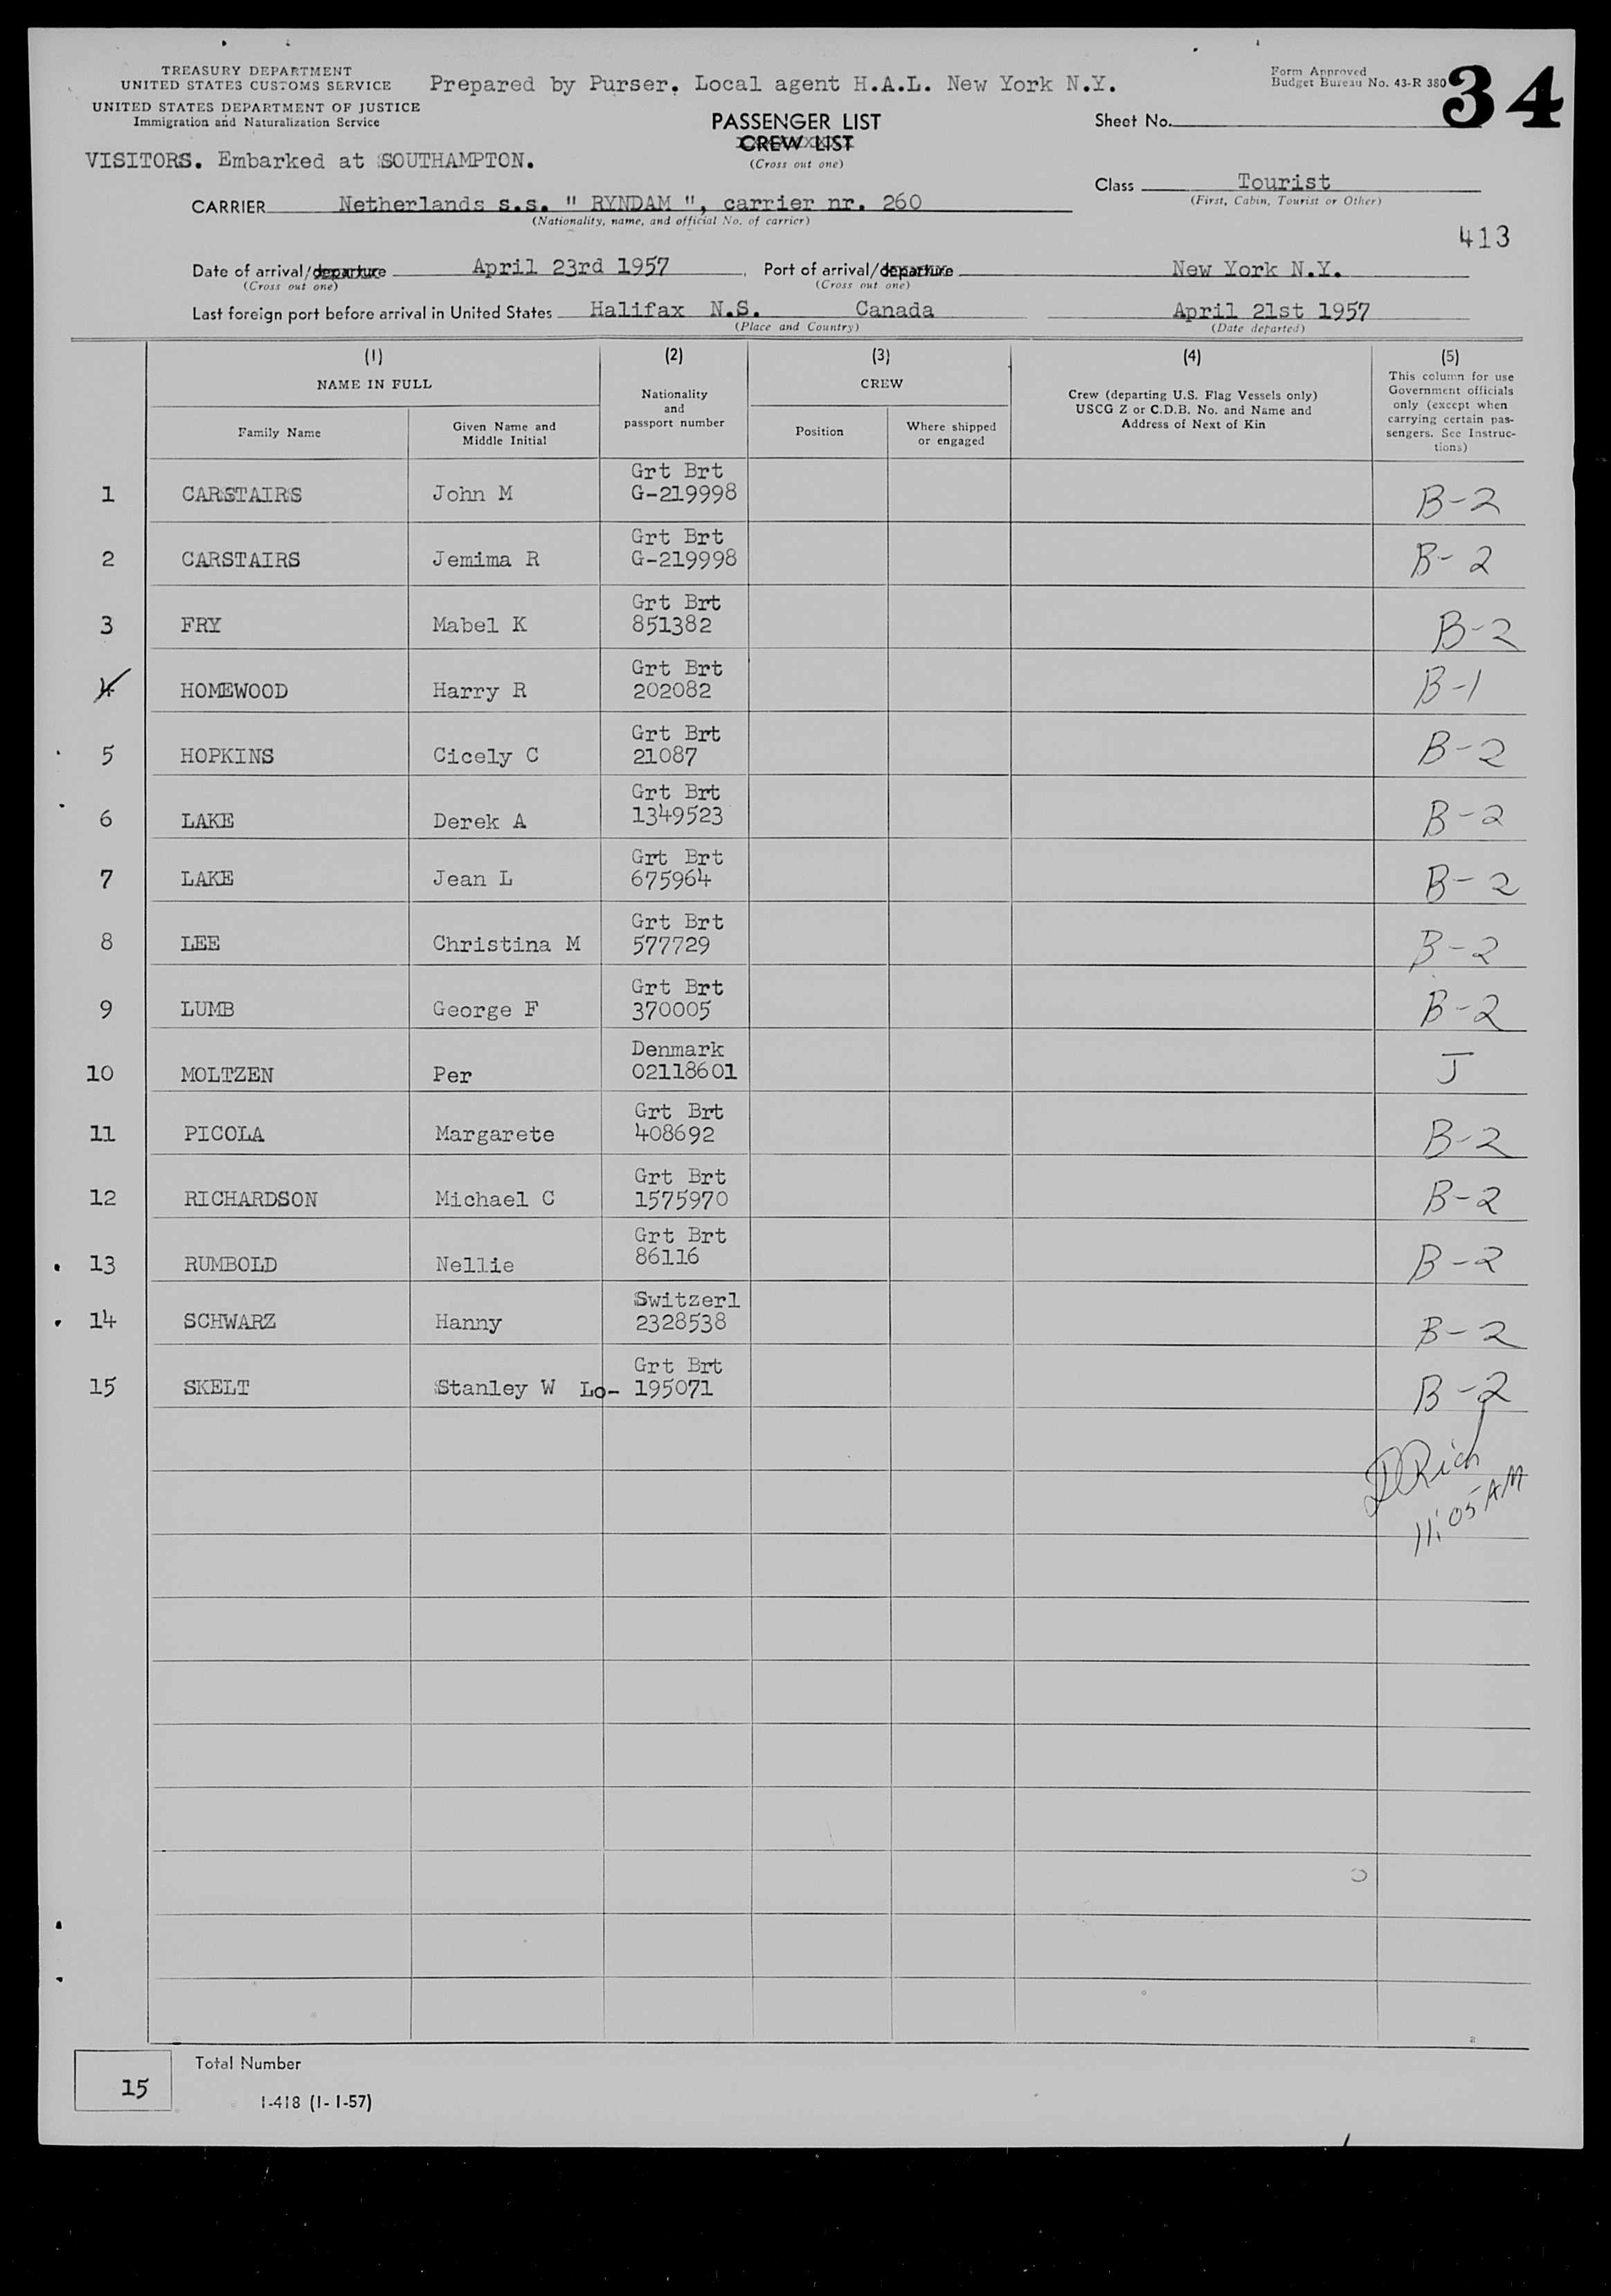 TREASURY DEPARTMENT
UNITED STATES CUSTOMS SERVICE
UNITED STATES DEPARTMENT OF JUSTICE
Immigration and Naturalization Service
Prepared by Purser. Local agent H.A.L. New York N.Y.
Form Approved
Budget Bureau No. 43-R 380
34
PASSENGER LIST
CREW LIST
(Cross out one)
Sheet No.
VISITORS. Embarked at SOUTHAMPTON.
Class Tourist
(First, Cabin, Tourist or Other)
CARRIER Netherlands s.s. " RYNDAM ", carrier nr. 260
(Nationality, name, and official No. of carrier)
413
Date of arrival/departure April 23rd 1957, Port of arrival/departure New York N.Y.
(Cross out one) (Cross out one)
Last foreign port before arrival in United States Halifax N.S. Canada April 21st 1957
(Place and Country) (Date departed)
(1) (2) (3) (4) (5)
NAME IN FULL
Family Name
Given Name and
Middle Initial
Nationality
and
passport number
CREW
Position
Where shipped
or engaged
Crew (departing U.S. Flag Vessels only)
USCG Z or C.D.B. No. and Name and
Address of Next of Kin
This column for use
Government officials
only (except when
carrying certain pas-
sengers. See Instruc-
tions)
Grt Brt
1 CARSTAIRS John M G-219998 B-2
Grt Brt
2 CARSTAIRS Jemima R G-219998 B-2
Grt Brt
3 FRY Mabel K 851382 B-2
Grt Brt
4 HOMEWOOD Harry R 202082 B-1
Grt Brt
5 HOPKINS Cicely C 21087 B-2
Grt Brt
6 LAKE Derek A 1349523 B-2
Grt Brt
7 LAKE Jean L 675964 B-2
Grt Brt
8 LEE Christina M 577729 B-2
Grt Brt
9 LUMB George F 370005 B-2
Denmark
10 MOLTZEN Per 02118601 J
Grt Brt
11 PICOLA Margarete 408692 B-2
Grt Brt
12 RICHARDSON Michael C 1575970 B-2
Grt Brt
13 RUMBOLD Nellie 86116 B-2
Switzerl
14 SCHWARZ Hanny 2328538 B-2
Grt Brt
15 SKELT Stanley W Lo- 195071 B-2
DRich
11:05 AM
15
Total Number
I-418 (1-1-57)